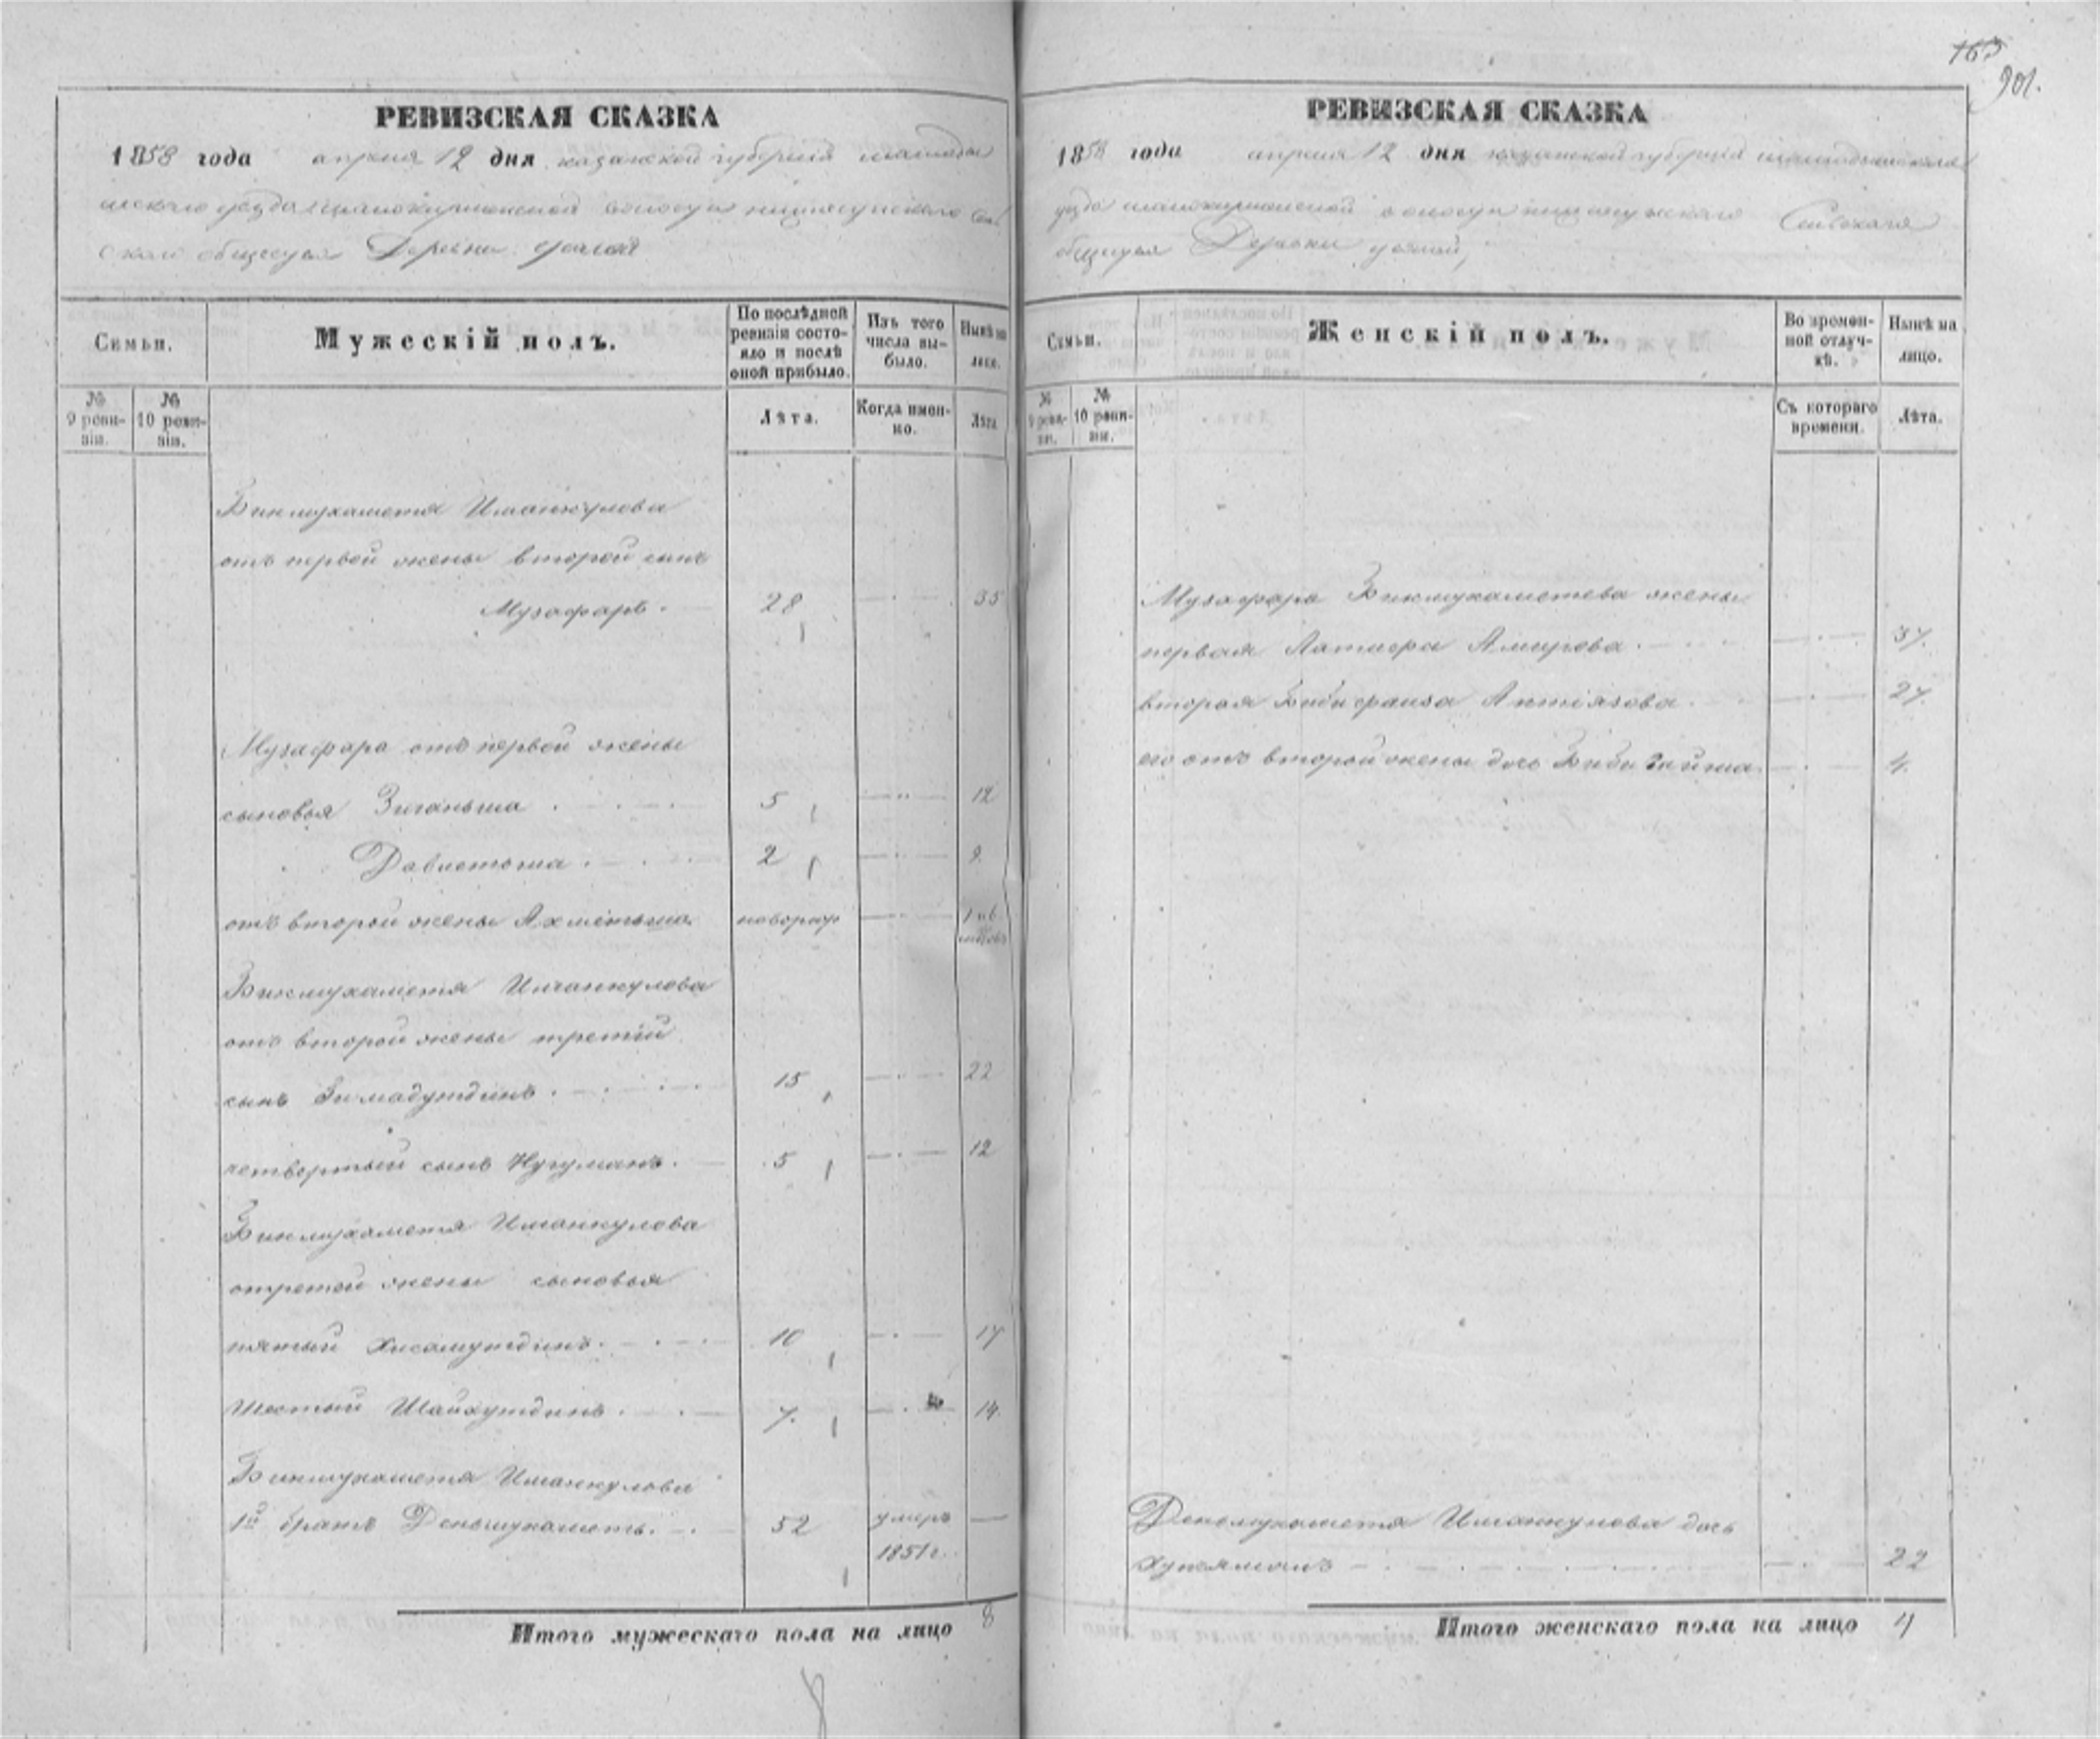 165
901.
РЕВИЗСКАЯ СКАЗКА
1858 года апреля 12 дня казанской губерніи мамады
шскаго уезда волости
общества Деревни
Семьи.
Мужескій полъ.
По послѣдней ревизіи состояло и послѣ оной прибыло.
Изъ того числа выбыло.
Нынѣ на лицо.
№ 9 ревизіи.
№ 10 ревизіи.
Лѣта.
Когда именно.
Лѣта
Бикмухаметя Иманкулова
отъ первой жены второй сынъ
Музафаръ. 28 35
Музафара отъ первой жены
сыновья Зиганьша 5 12
Давлетьша 2 9.
отъ второй жены Ахметьша новорож
Бикмухаметя Иманкулова
отъ второй жены третій
сынъ Зимадутдинъ 15 22
четвертый сынъ Нугуманъ. 5 12
Бикмухаметя Иманкулова
отретей жены сыновья
пятый Хисамутдинъ. 10 17
шестый Шайхутдинъ 7. 14.
Бикмухаметя Иманкулова
1й братъ Деньмухаметь. 52 умеръ
1851 г.
Итого мужескаго пола на лицо 8
РЕВИЗСКАЯ СКАЗКА
1858 года апреля 12 дня казанской губерніи мамадышскаго
уезда волости Сельскаго
общества Деревни
Семьи.
Женскій полъ.
Во временной отлучкѣ.
Нынѣ на лицо.
№ 9 ревизіи.
№ 10 ревизіи.
Съ котораго времени.
Лѣта.
Музафара Бикмухаметева жены
первая Латифа Амирова 37.
вторая Биби фаиза Аптіязова 27.
его отъ второй жены дочь Биби 4.
Деньмухаметя Иманкулова дочь
22
Итого женскаго пола на лицо 4